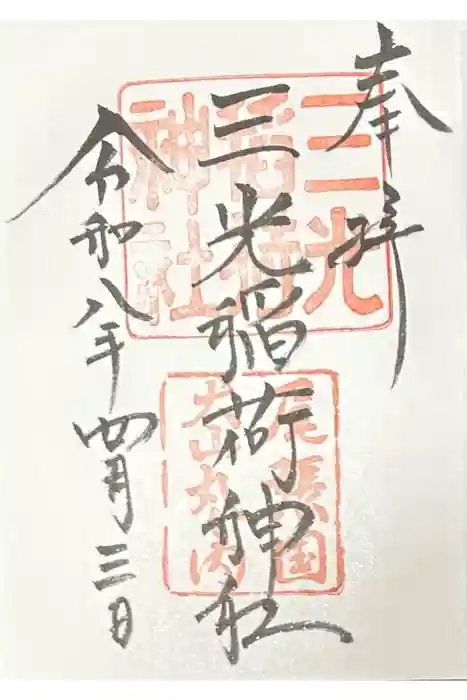 奉拝
三光稲荷神社
令和八年四月三日
三光
稲荷
神社
尾張国
犬山丸の内